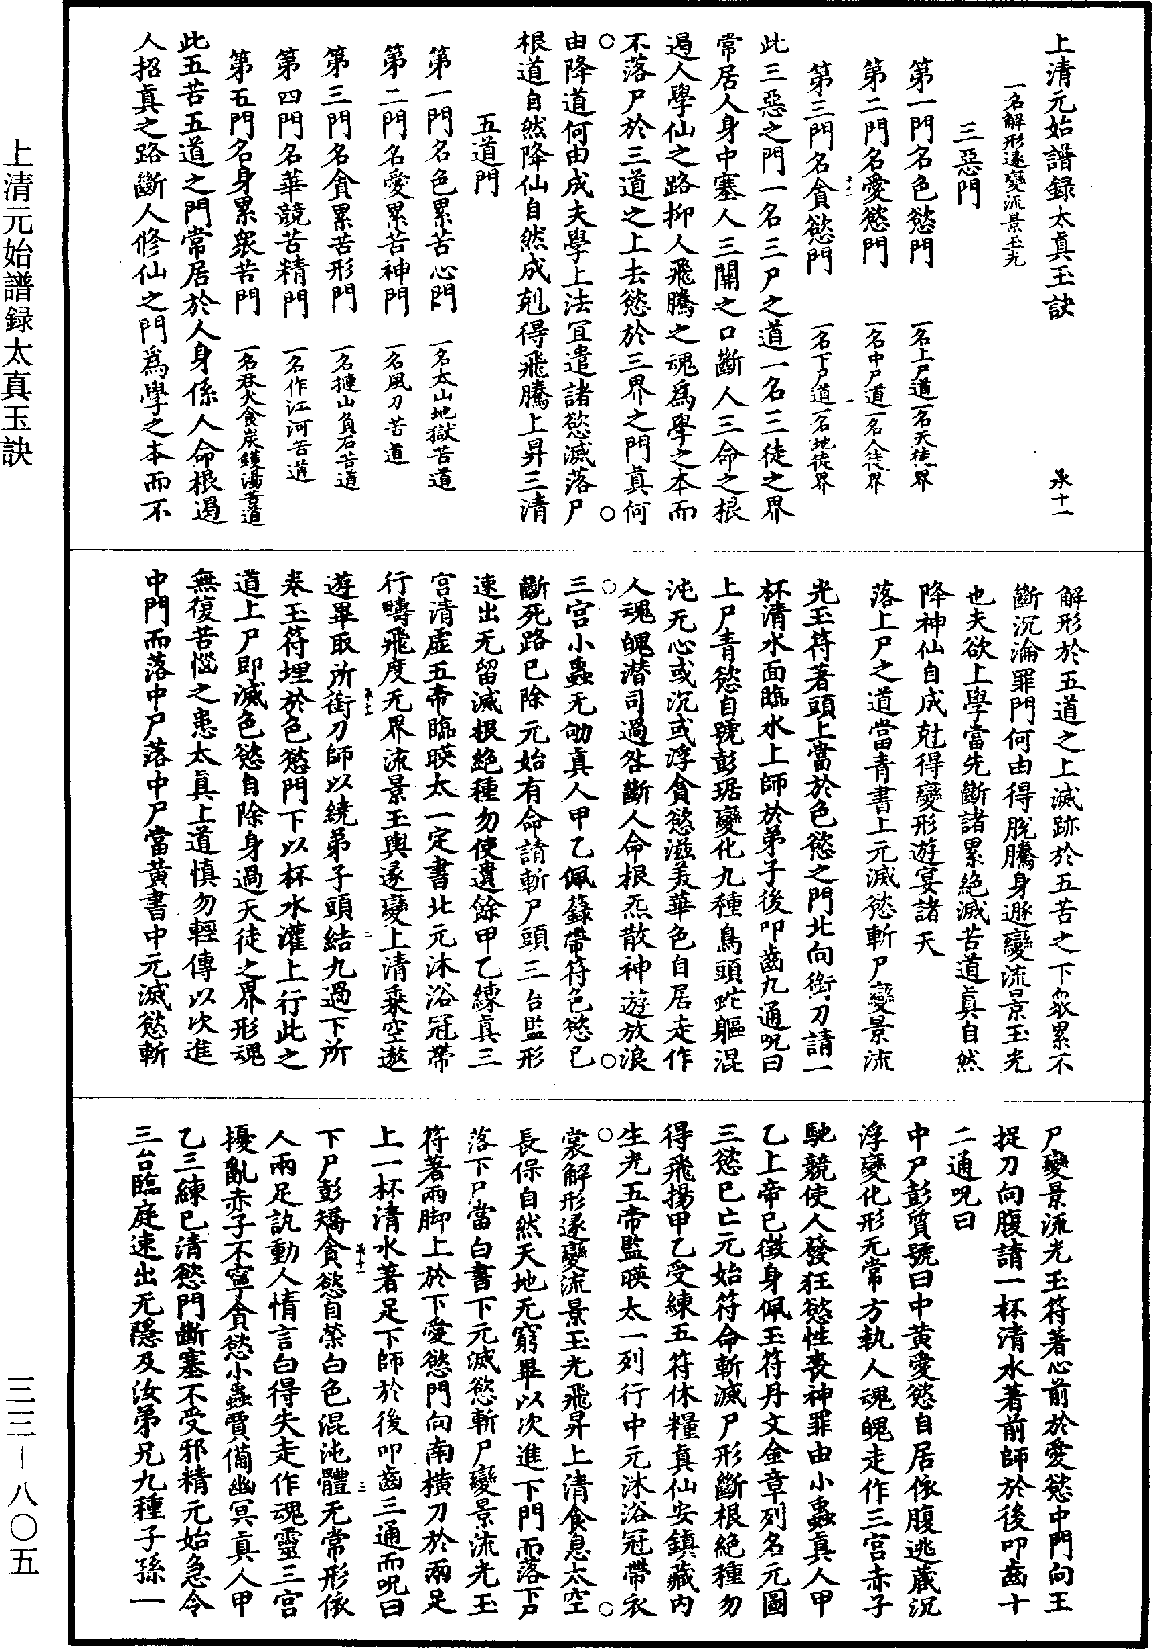 上清元始譜録太真玉訣
三三—八〇五
上清元始譜録太真玉訣　　永十一
一名解形遯變流景玉光
三惡門
第一門名色慾門　一名上尸道一名天徒界
第二門名愛慾門　一名中尸道一名人徒界
第三門名貪慾門　一名下尸道一名地徒界
此三惡之門一名三尸之道一名三徒之界
常居人身中塞人三關之口斷人三命之根
遏人學仙之路抑人飛騰之魂爲學之本而
不落尸於三道之上去慾於三界之門真何
由降道何由成夫學上法冝遣諸慾滅落尸
根道自然降仙自然成剋得飛騰上昇三清
五道門
第一門名色累苦心門　一名太山地獄苦道
第二門名愛累苦神門　一名風刀苦道
第三門名貪累苦形門　一名摙山負石苦道
第四門名華競苦精門　一名作江河苦道
第五門名身累衆苦門　一名吞火食炭鑊湯苦道
此五苦五道之門常居於人身係人命根遏
人招真之路斷人修仙之門爲學之本而不
解形於五道之上滅跡於五苦之下衆累不
斷沉淪罪門何由得脫騰身遯變流景玉光
也夫欲上學當先斷諸累絶滅苦道真自然
降神仙自成尅得變形遊宴諸天
落上尸之道當青書上元滅慾斬尸變景流
光玉符著頭上當於色慾之門北向銜刀請一
杯清水面臨水上師於弟子後叩齒九通呪曰
上尸青慾自號彭琚變化九種鳥頭虵軀混
沌无心或沉或浮貪慾滋美華色自居走作
人魂魄潛司過咎斷人命根炁散神遊放浪
三宫小蟲无劬真人甲乙佩籙帶符色慾已
斷死路已除元始有命請斬尸頭三台監形
速出无留滅根絶種勿使遺餘甲乙練真三
宫清虛五帝臨暎太一定書北元沐浴冠帶
行疇飛度无界流景玉輿遯變上清乗空遨
遊畢取所銜刀師以繞弟子頭結九過下所
奉玉符埋於色慾門下以杯水灌上行此之
道上尸即滅色慾自除身過天徒之界形魂
無復苦惱之患太真上道慎勿輕傳以次進
中門而落中尸落中尸當黄書中元滅慾斬
尸變景流光玉符著心前於愛慾中門向王
捉刀向腹請一杯清水著前師於後叩齒十
二通呪曰
中尸彭質號曰中黄愛慾自居依腹逃藏沉
浮變化形无常方執人魂魄走作三宫赤子
馳競使人發狂慾性喪神罪由小蟲真人甲
乙上帝已徵身佩玉符丹文金章列名元圖
三慾已亡元始符命斬滅尸形斷根絶種勿
得飛揚甲乙受練五符休糧真仙安鎮藏内
生光五帝監暎太一列行中元沐浴冠帶衣
裳解形遯變流景玉光飛昇上清食息太空
長保自然天地无窮畢以次進下門而落下尸
落下尸當白書下元滅慾斬尸變景流光玉
符著兩脚上於下愛慾門向南横刀於兩足
上一杯清水著足下師於後叩齒三通而呪曰
下尸彭矯貪慾自縈白色混沌體无常形依
人兩足訆動人情言白得失走作魂靈三宫
擾亂赤子不寧貪慾小蟲賈備幽冥真人甲
乙三練已清慾門斷塞不受邪精元始急令
三台臨庭速出无隱及汝弟兄九種子孫一